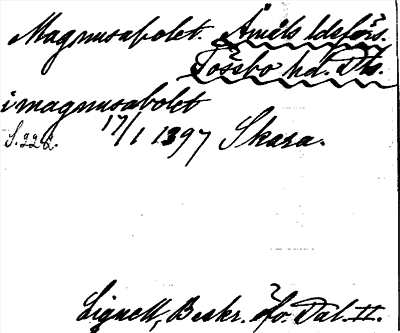 Magnusabolet. Åmåls ldsförs.
Tössbo hd. Dls.
i magnusabolet
S. 228. 17/1 1397 Skara.
Lignell, Beskr. öfv. Dal. II.